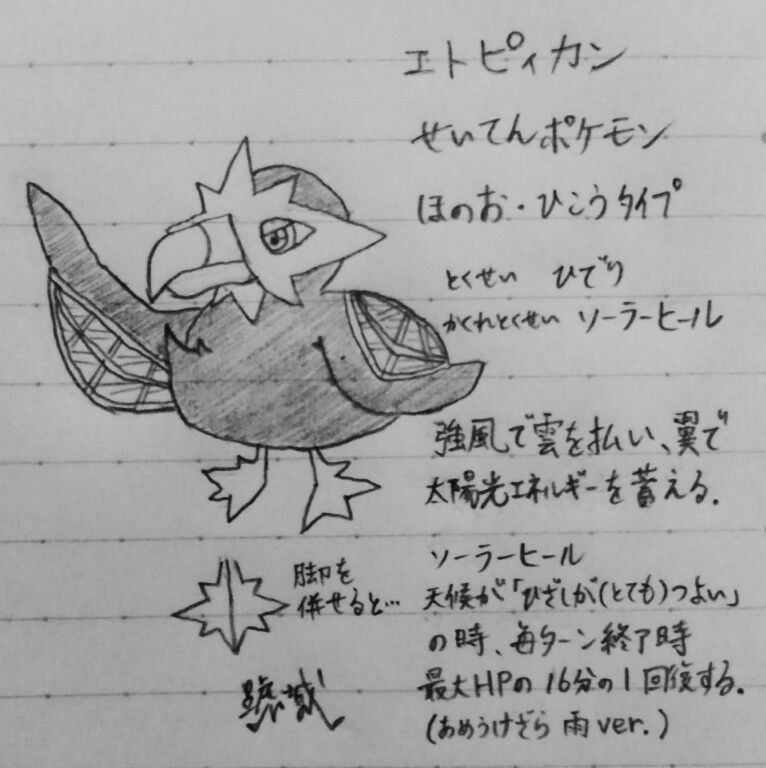 エトピィカン
せいてんポケモン
ほのお・ひこうタイプ
とくせい ひでり
かくれとくせい ソーラーヒール
強風で雲を払い、翼で
太陽光エネルギーを蓄える.
脚を
併せると…
ソーラーヒール
天候が「ひざしが(とても)つよい」
の時、毎ターン終了時
最大HPの16分の1回復する.
(あめうけざら 雨ver.)